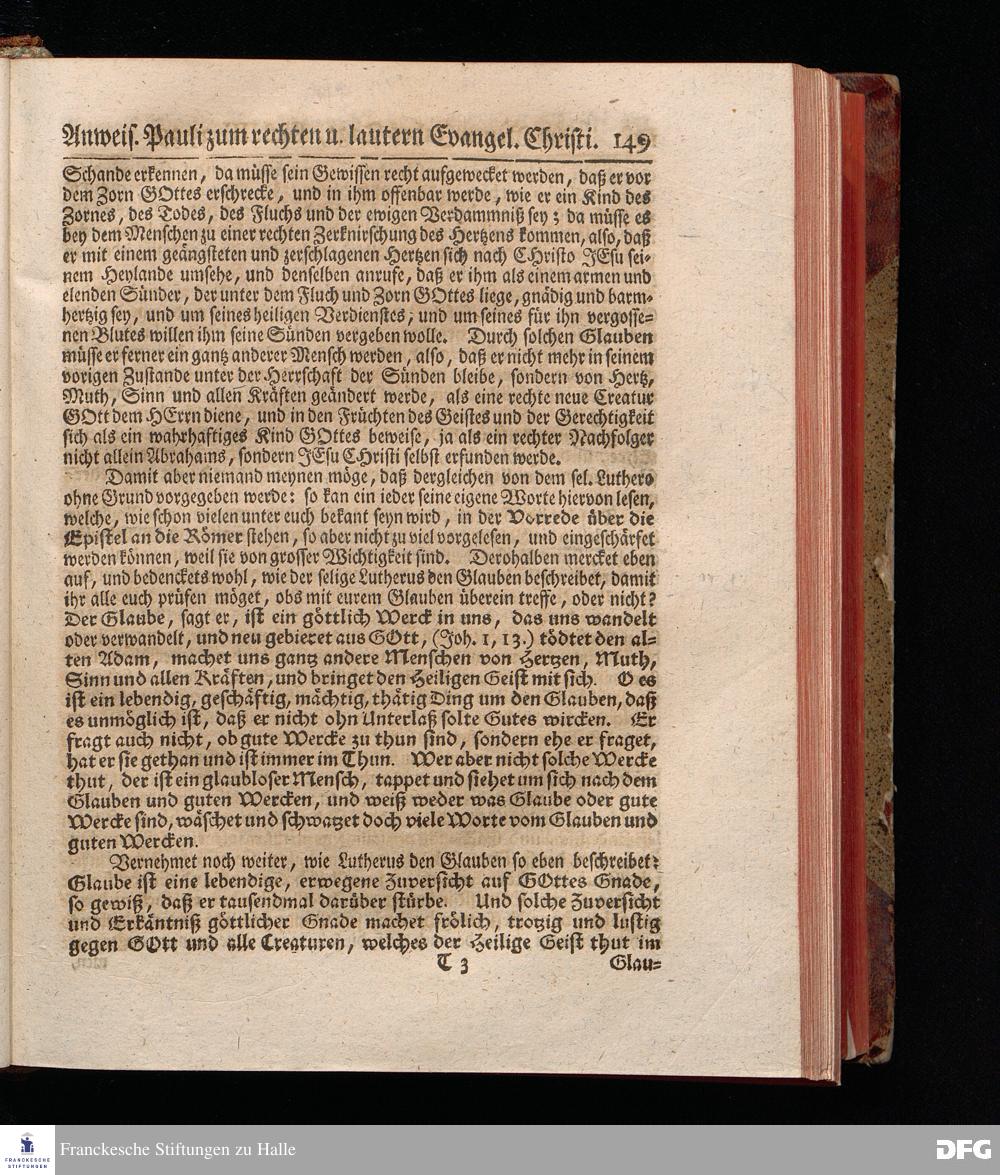 Anweis. Pauli zum rechten u. lautern Evangel. Christi. 149
Schande erkennen, da müsse sein Gewissen recht aufgewecket werden, daß er vor
dem Zorn GOttes erschrecke, und in ihm offenbar werde, wie er ein Kind des
Zornes, des Todes, des Fluchs und der ewigen Verdammniß sey; da müsse es
bey dem Menschen zu einer rechten Zerknirschung des Hertzens kommen, also, daß
er mit einem geängsteten und zerschlagenen Hertzen sich nach CHristo JEsu sei-
nem Heylande umsehe, und denselben anrufe, daß er ihm als einem armen und
elenden Sünder, der unter dem Fluch und Zorn GOttes liege, gnädig und barm-
hertzig sey, und um seines heiligen Verdienstes, und um seines für ihn vergosse-
nen Blutes willen ihm seine Sünden vergeben wolle. Durch solchen Glauben
müsse er ferner ein gantz anderer Mensch werden, also, daß er nicht mehr in seinem
vorigen Zustande unter der Herrschaft der Sünden bleibe, sondern von Hertz,
Muth, Sinn und allen Kräften geändert werde, als eine rechte neue Creatur
GOtt dem HErrn diene, und in den Früchten des Geistes und der Gerechtigkeit
sich als ein wahrhaftiges Kind GOttes beweise, ja als ein rechter Nachfolger
nicht allein Abrahams, sondern JEsu CHristi selbst erfunden werde.
Damit aber niemand meynen möge, daß dergleichen von dem sel. Luthero
ohne Grund vorgegeben werde: so kan ein ieder seine eigene Worte hiervon lesen,
welche, wie schon vielen unter euch bekant seyn wird, in der Vorrede über die
Epistel an die Römer stehen, so aber nicht zu viel vorgelesen, und eingeschärfet
werden können, weil sie von grosser Wichtigkeit sind. Derohalben mercket eben
auf, und bedenckets wohl, wie der selige Lutherus den Glauben beschreibet, damit
ihr alle euch prüfen möget, obs mit eurem Glauben überein treffe, oder nicht?
Der Glaube, sagt er, ist ein göttlich Werck in uns, das uns wandelt
oder verwandelt, und neu gebieret aus GOtt, (Joh. 1, 13.) tödtet den al-
ten Adam, machet uns gantz andere Menschen von Hertzen, Muth,
Sinn und allen Kräften, und bringet den Heiligen Geist mit sich. O es
ist ein lebendig, geschäftig, mächtig, thätig Ding um den Glauben, daß
es unmöglich ist, daß er nicht ohn Unterlaß solte Gutes wircken. Er
fragt auch nicht, ob gute Wercke zu thun sind, sondern ehe er fraget,
hat er sie gethan und ist immer im Thun. Wer aber nicht solche Wercke
thut, der ist ein glaubloser Mensch, tappet und siehet um sich nach dem
Glauben und guten Wercken, und weiß weder was Glaube oder gute
Wercke sind, wäschet und schwatzet doch viele Worte vom Glauben und
guten Wercken.
Vernehmet noch weiter, wie Lutherus den Glauben so eben beschreibet:
Glaube ist eine lebendige, erwegene Zuversicht auf GOttes Gnade,
so gewiß, daß er tausendmal darüber stürbe. Und solche Zuversicht
und Erkäntniß göttlicher Gnade machet frölich, trotzig und lustig
gegen GOtt und alle Creaturen, welches der Heilige Geist thut im
T 3 Glau-
FRANCKESCHE
STIFTUNGEN
Franckesche Stiftungen zu Halle
DFG